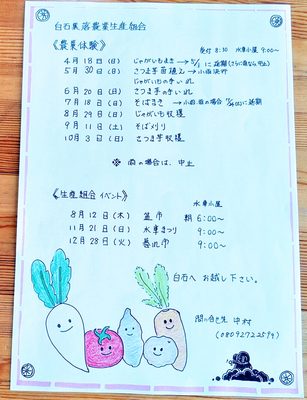 白石集落農業生産組合
《農業体験》 受付 8:30 水車小屋 9:00〜
4月18日(日) じゃがいもまき → 5/1に延期(さらに雨なら中止)
5月30日(日) さつま芋苗植え → 小雨決行
じゃがいもの手入れ
6月20日(日) さつま芋の手入れ
7月18日(日) そばまき → 小雨、雨の場合 に延期
8月29日(日) じゃがいも収穫
9月11日(土) そば刈り
10月3日(日) さつま芋収穫
※ 雨の場合は、中止
《生産組合イベント》 水車小屋
8月12日(木) 盆市 朝6:00〜
11月21日(日) 水車まつり 9:00〜
12月28日(火) 暮れ市 9:00〜
白石へ お越し下さい。
問い合せ先 中村
(08092722594)